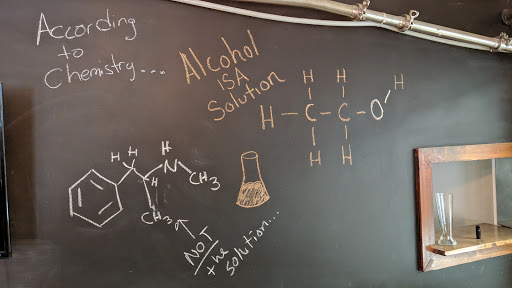 According
to
Chemistry...
Alcohol
IS A
Solution
H H H
H - C - C - O
H H
H H H
N
H CH3
CH3
NOT
the
solution...